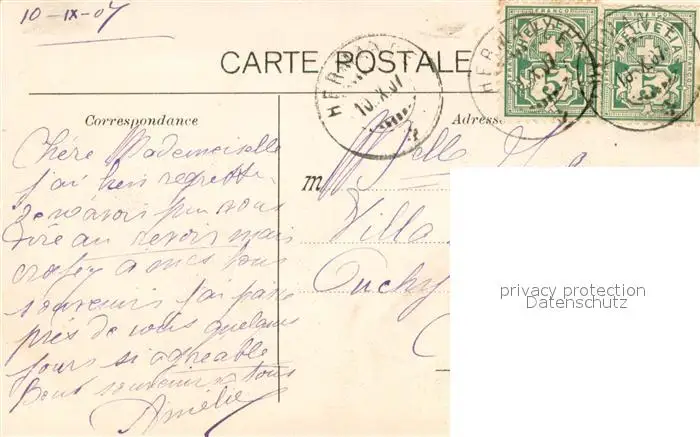 10-IX-07
CARTE POSTALE
HELVETIA
HELVETIA
FRANCO
5
5
HERMANCE
10.X.07
Correspondance
Adresse
Chère Mademoiselle
j'ai bien regretté
de n'avoir pu vous
dire au revoir mais
croyez à mes bons
souvenirs j'ai passé
près de vous quelques
jours si agréable
Bons souvenirs à tous
Amélie
M
Melle
Villa
Ouchy
privacy protection
Datenschutz